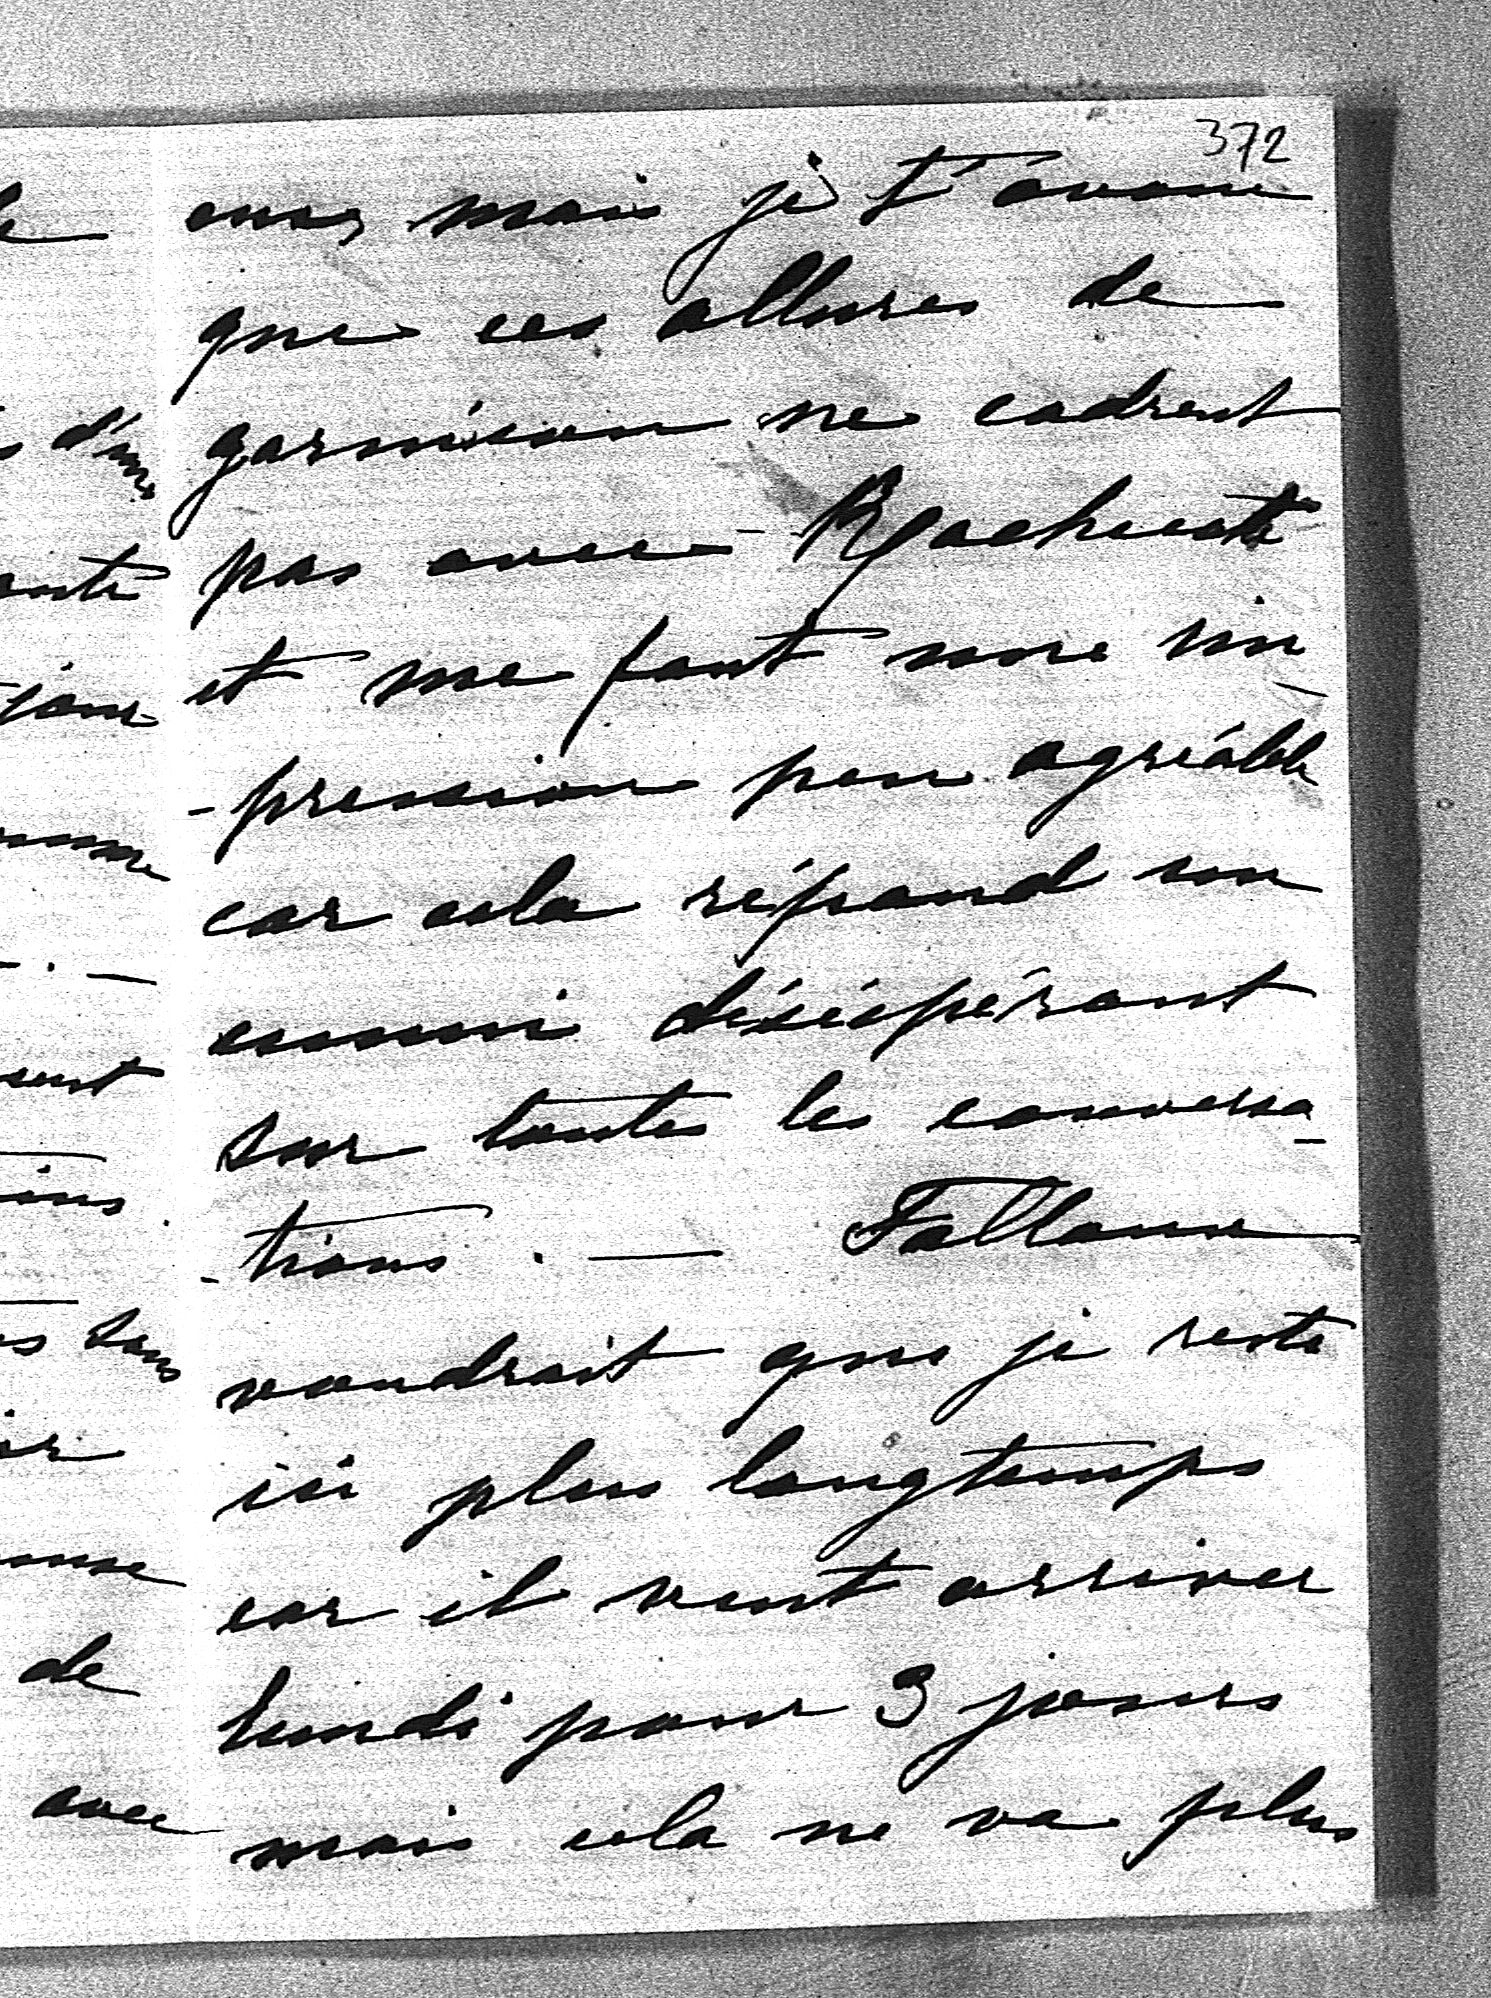 372
eux, mais je t'avoue
que ces allures de
garnison ne cadrent
pas avec
et me font une im
-pression peu agréable
car cela répand un
ennui désespérant
sur toute les conversa-
-tions. — Falloux
voudrait que je reste
ici plus longtemps
car il veut arriver
lundi pour 3 jours
mais cela ne va plus
d'une
sent
sans
de
avec